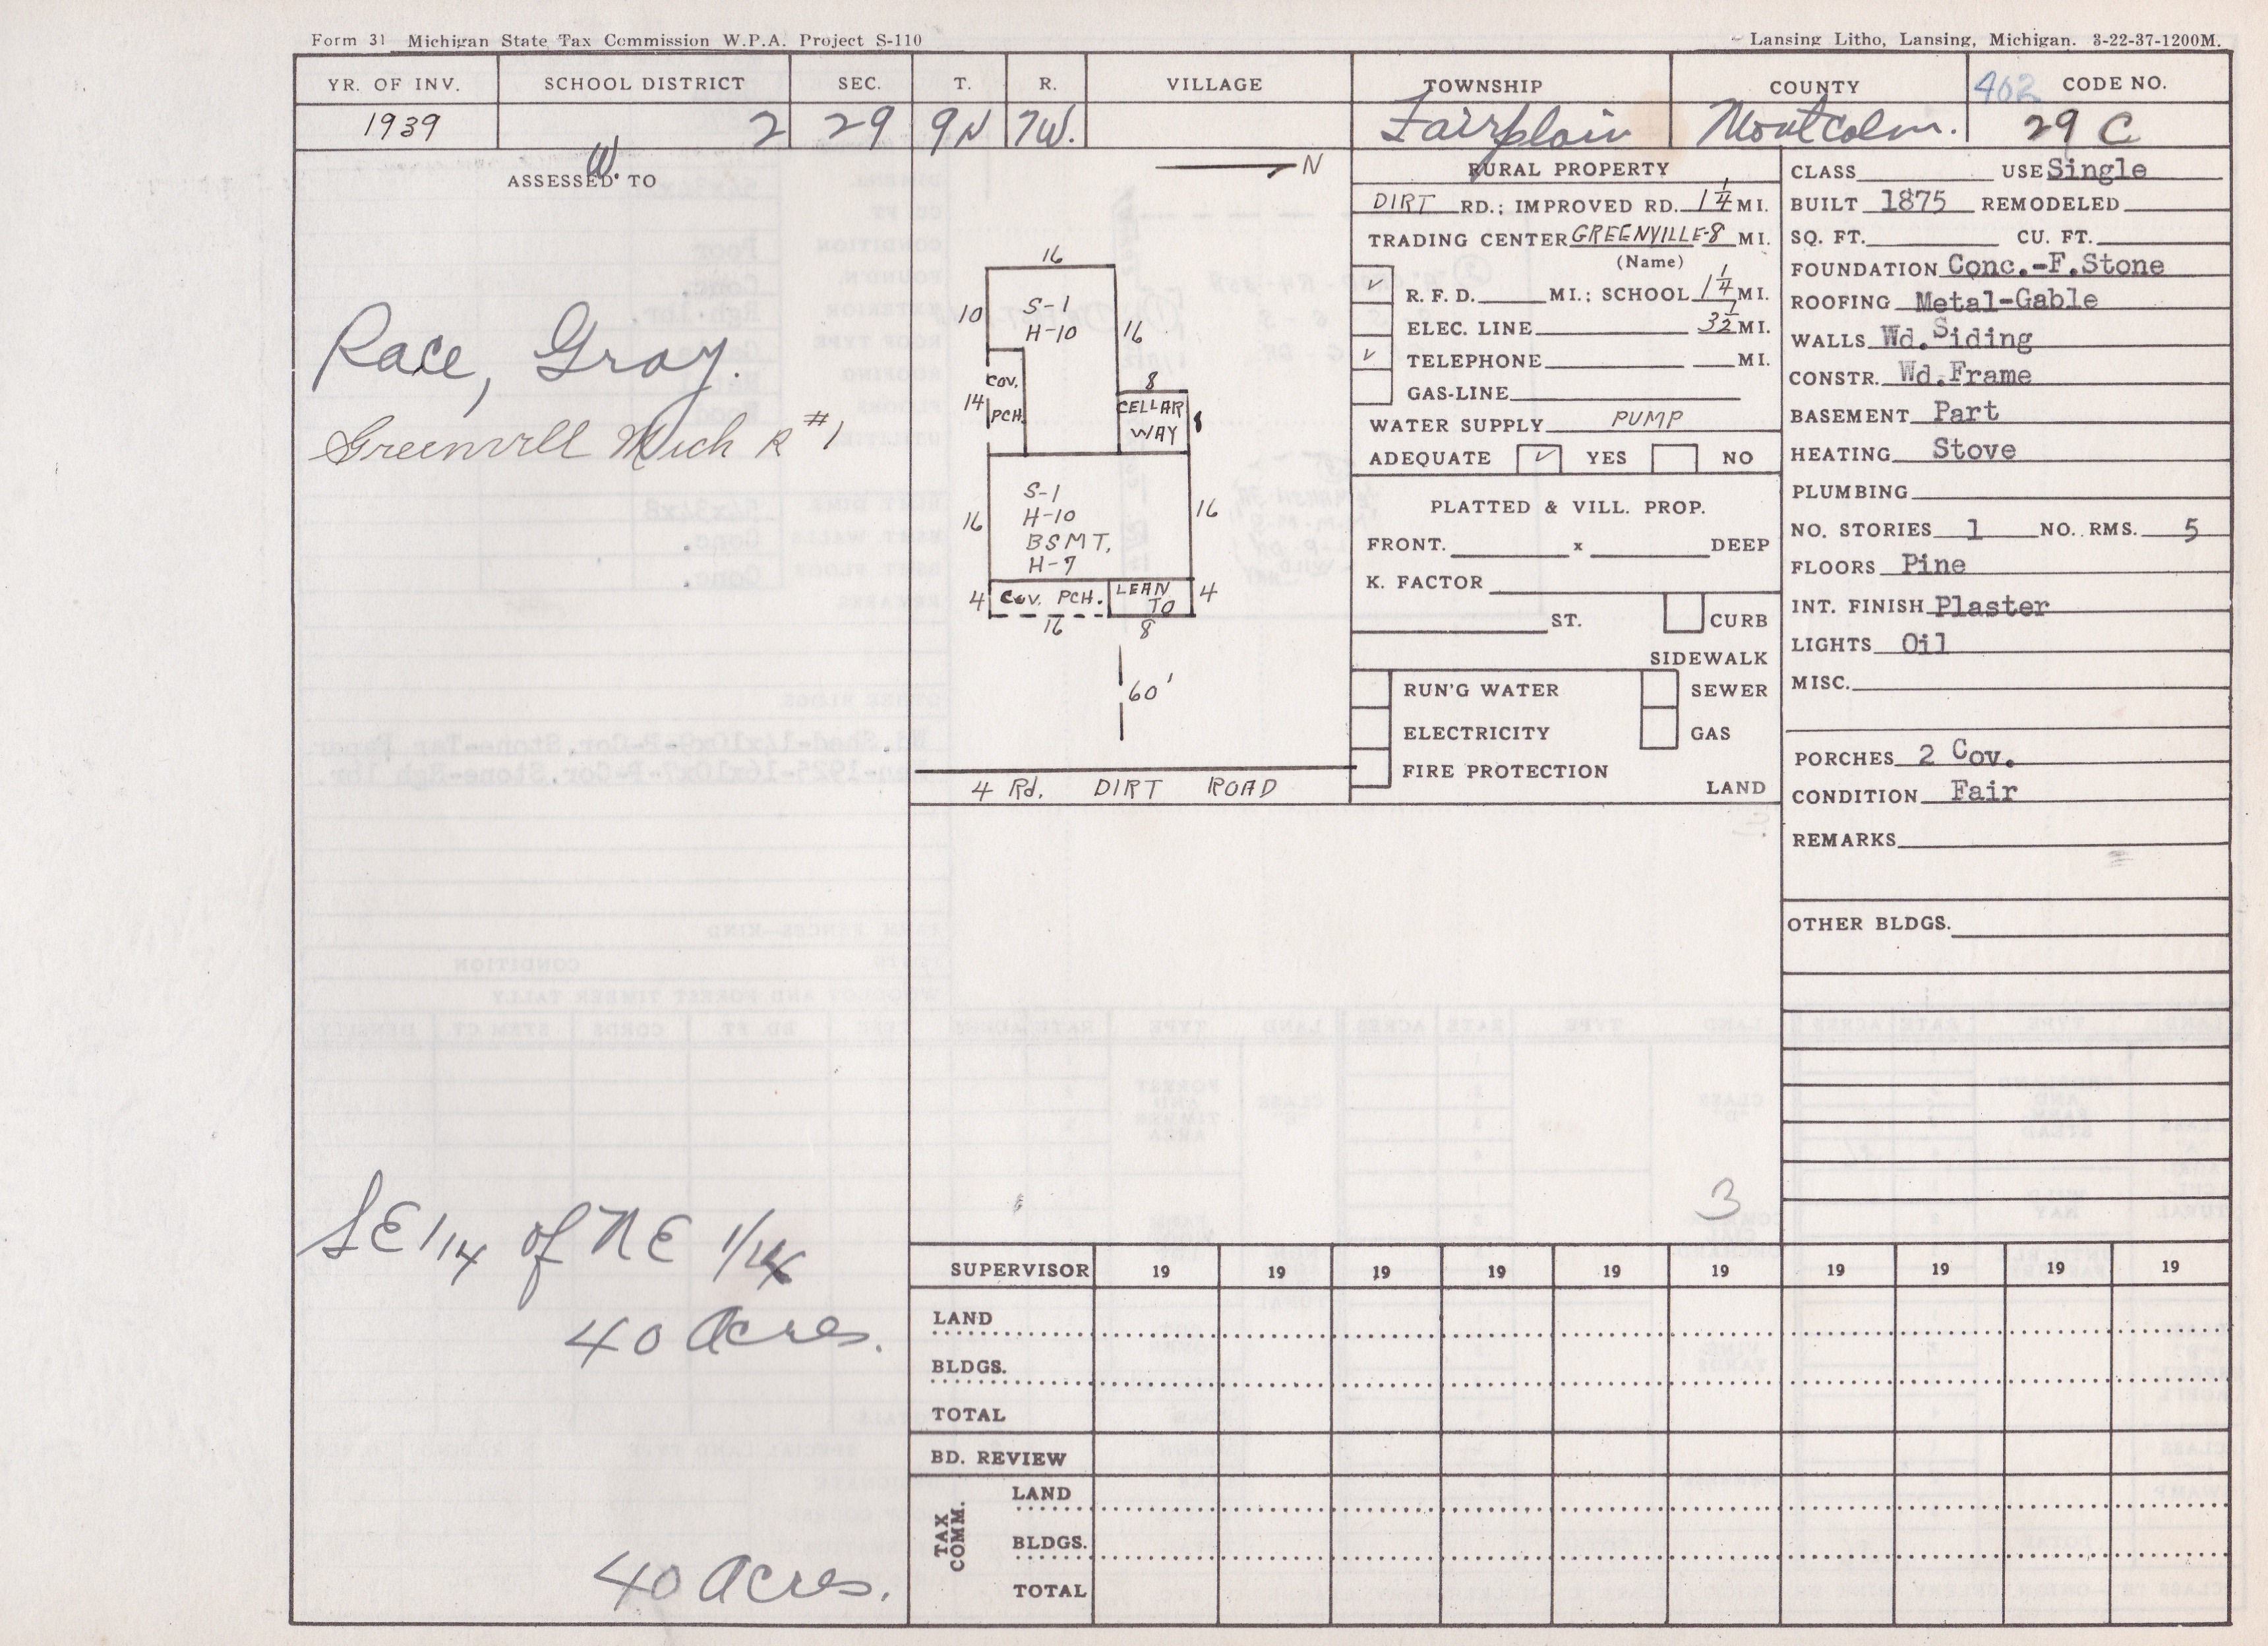 Form 31 Michigan State Tax Commission W.P.A. Project S-110
Lansing Litho, Lansing, Michigan. 3-22-37-1200M.
YR. OF INV. SCHOOL DISTRICT SEC. T. R. VILLAGE TOWNSHIP COUNTY 402 CODE NO.
1939 2 29 9N 7W. Fairplain Montcolm. 29 C
W
ASSESSED TO
Race, Gray.
Greenvill Mich R #1
SE 1/4 of NE 1/4
40 Acres.
40 Acres.
N
16
10 S-1
H-10 16
COV.
14 PCH.
8
CELLAR
WAY
16 S-1 16
H-10
BSMT,
H-7
4 COV. PCH. LEAN TO 4
16 8
60'
4 Rd. DIRT ROAD
RURAL PROPERTY
DIRT RD.; IMPROVED RD. 1 1/4 MI.
TRADING CENTER GREENVILLE-8 MI.
(Name)
✓ R. F. D. MI.; SCHOOL 1 1/4 MI.
ELEC. LINE 3 1/2 MI.
✓ TELEPHONE MI.
GAS-LINE
WATER SUPPLY PUMP
ADEQUATE ✓ YES NO
PLATTED & VILL. PROP.
FRONT. x DEEP
K. FACTOR
ST. CURB
SIDEWALK
RUN'G WATER SEWER
ELECTRICITY GAS
FIRE PROTECTION
LAND
3
CLASS USE Single
BUILT 1875 REMODELED
SQ. FT. CU. FT.
FOUNDATION Conc.-F.Stone
ROOFING Metal-Gable
WALLS Wd.Siding
CONSTR. Wd.Frame
BASEMENT Part
HEATING Stove
PLUMBING
NO. STORIES 1 NO. RMS. 5
FLOORS Pine
INT. FINISH Plaster
LIGHTS Oil
MISC.
PORCHES 2 Cov.
CONDITION Fair
REMARKS
OTHER BLDGS.
SUPERVISOR 19 19 19 19 19 19 19 19 19 19
LAND
BLDGS.
TOTAL
BD. REVIEW
TAX COMM.
LAND
BLDGS.
TOTAL